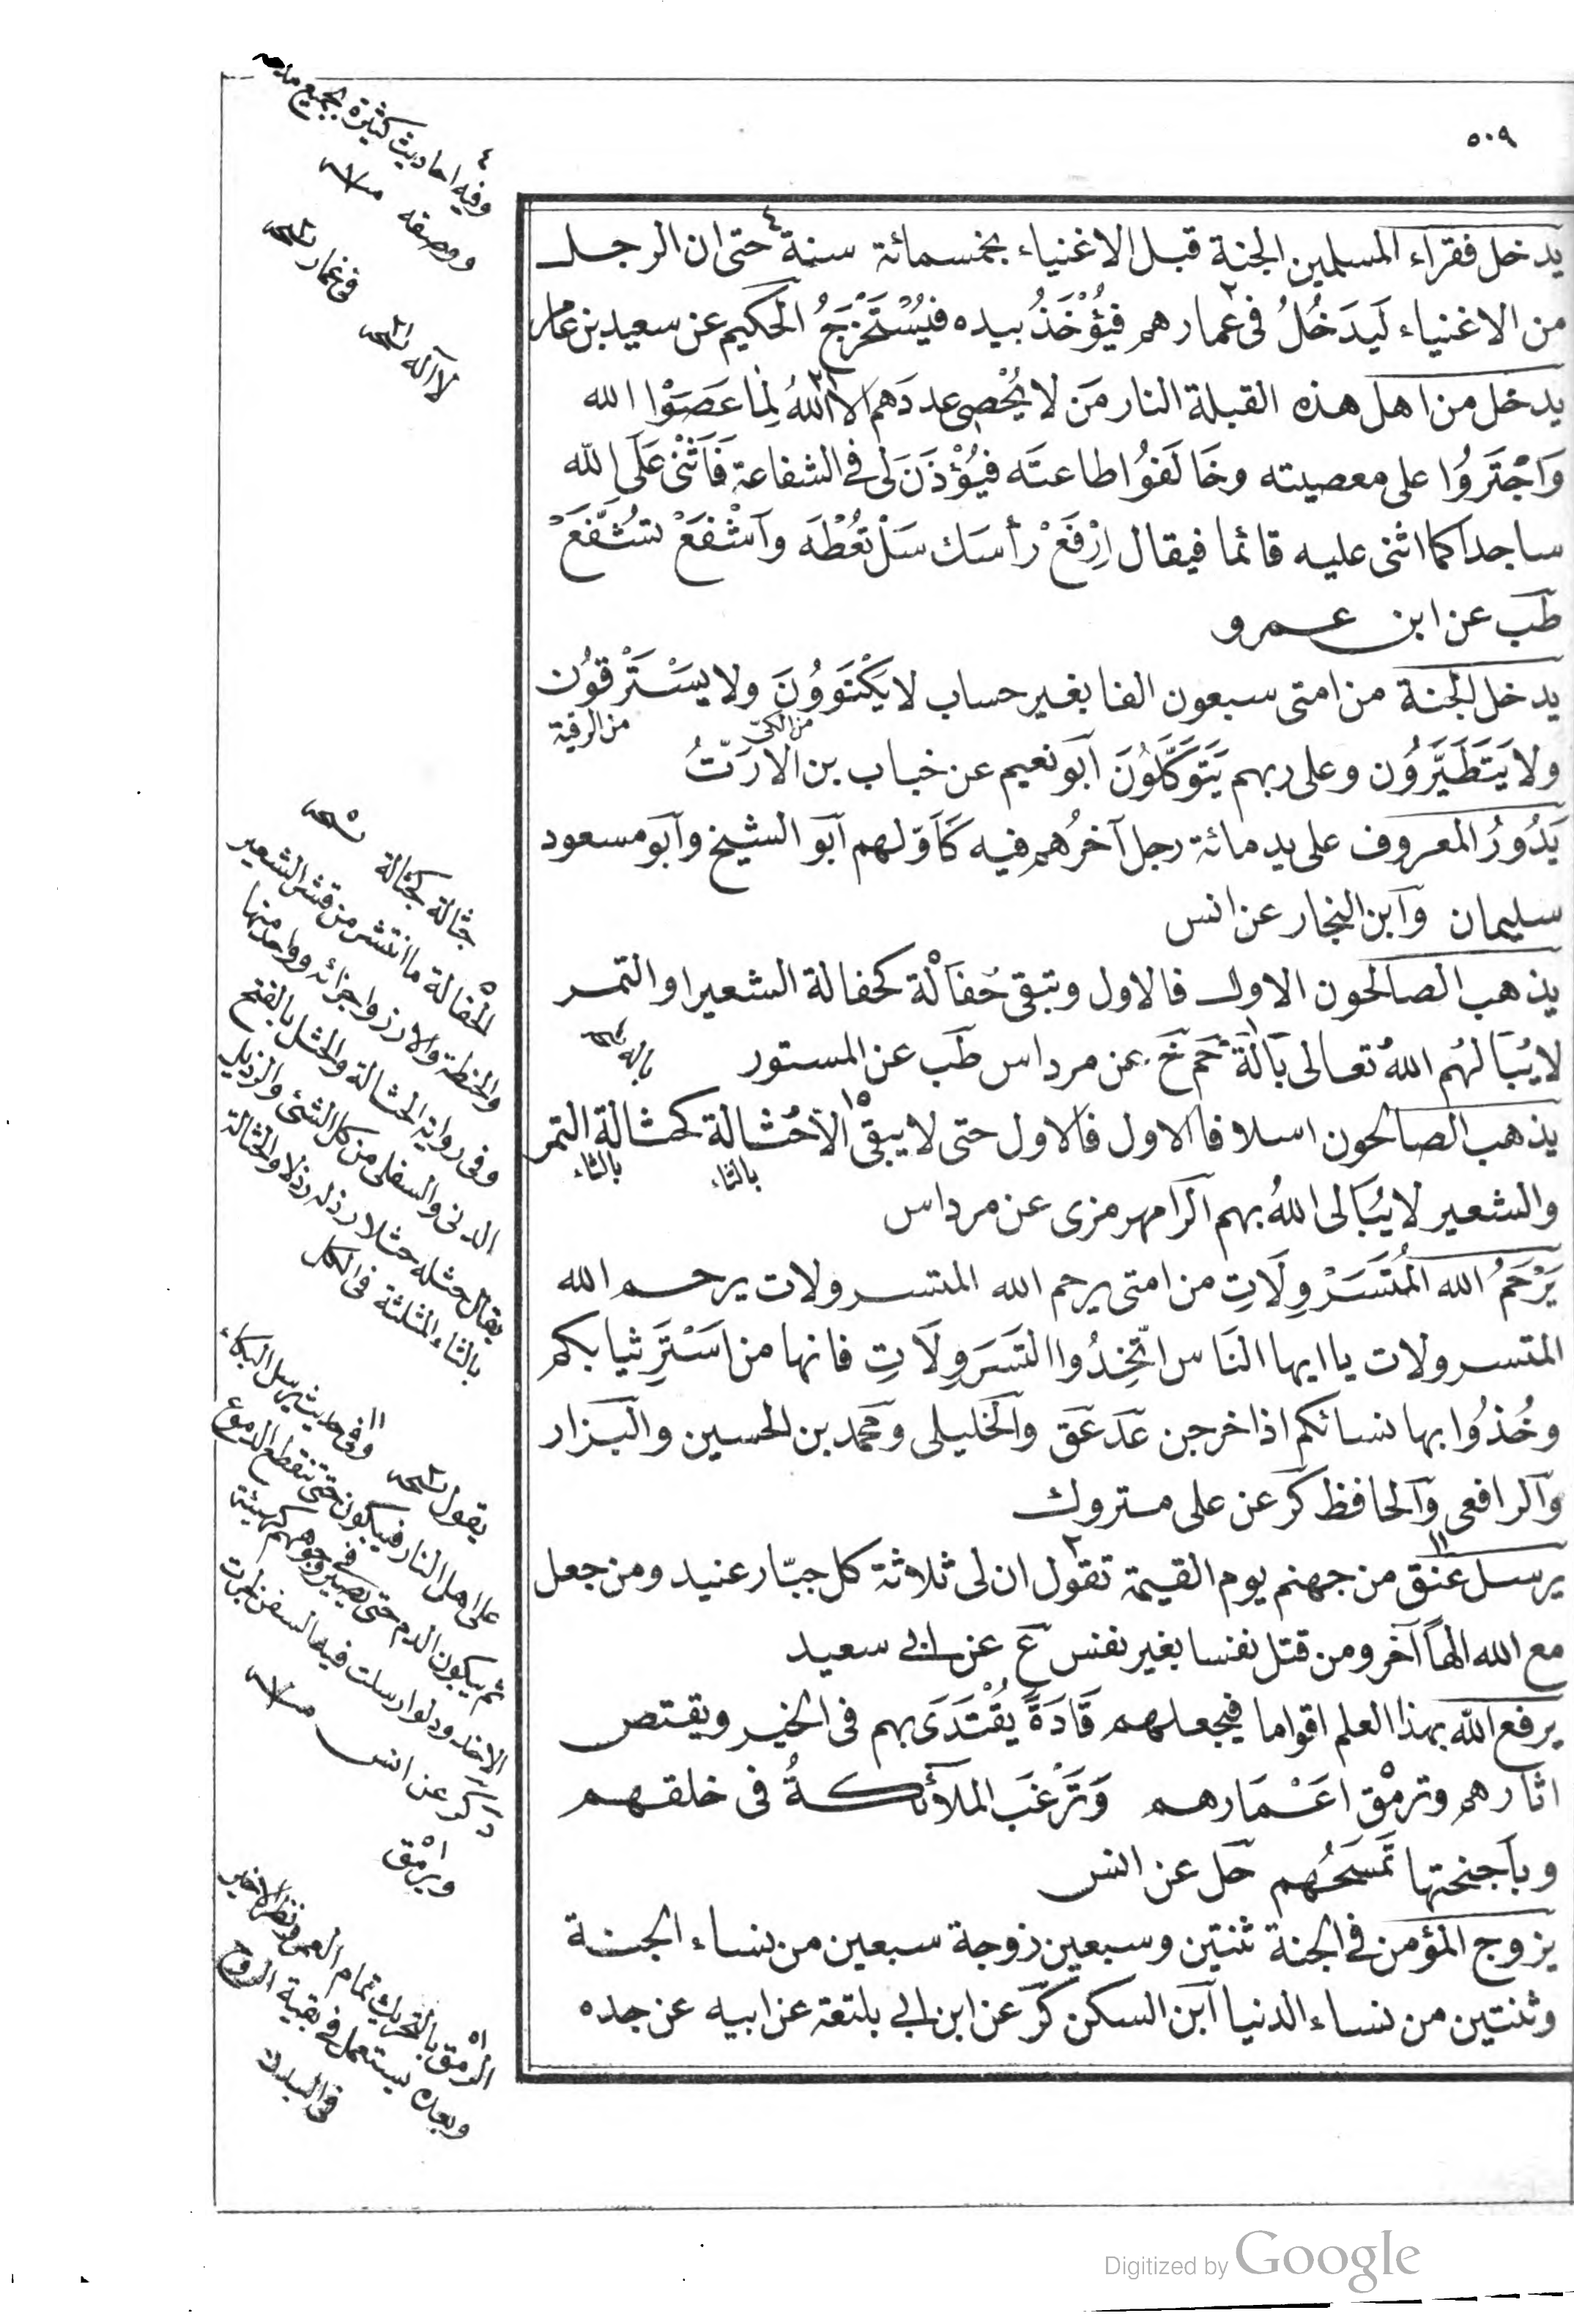 ٥٠٩
يدخل فقراء المسلمين الجنة قبل الاغنياء بخمسمائة سنة ٤ حتى ان الرجل
من الاغنياء لَيَدخُلُ فى غمارهم فَيُؤْخَذُ بيده فيُسْتَخْرَجُ الحكيم عن سعيد بن عامر
يدخل من اهل هذه القبلة النار مَن لا يُحْصِى عددَهم الا اللهُ بِمَا عَصَوْا الله
وَاجْتَرَؤُا على معصيته وخَالَفُوا طاعتَه فَيُؤْذَنَ لى فى الشفاعة فَاُثْنِى عَلَى الله
ساجدا كما اثنى عليه قائما فيقال اِرْفَعْ رأسك سَلْ تُعْطَه وَاشْفَعْ تُشَفَّعْ
طَب عن ابن عمرو
يدخل الجنة من امتى سبعون الفا بغير حساب لا يَكْتَوُونَ ولا يَسْتَرْقوُن
من الكى
من الرقية
ولا يَتَطَيَّرُون وعلى ربهم يَتَوَكَّلُونَ آبو نعيم عن خباب بن الارَتّ
يَدُورُ المعروف على يد مائة رجل آخرُهم فيه كَاَوّلهم آبو الشيخ وآبو مسعود
سليمان وآبن النجار عن انس
يذهب الصالحون الاول فالاول وتبقى حُفَالَة كحفالة الشعير او التمر
لا يُبَالهُم اللهُ تعالى بَالَةً حَم خَ عن مرداس طَب عن المستور
باله نسخه
يذهب الصالحون اسلافا الاول فالاول حتى لا يبقى الاّ حُثالة كحثالة التمر
بالثاء
بالثاء
والشعير لا يُبَالى اللهُ بهم آلرامهرمزى عن مرداس
يَرْحَمُ الله المُتَسَرْوِلَاتِ من امتى يرحم الله المتسرولات يرحم الله
المتسرولات يا ايها النَاس اتَّخِذُوا التَسَروِلَاتِ فانها من اَسْتَرِ ثيابكم
وخُذُوا بها نسائكم اذا خرجن عَد عَق والخليلى ومحمد بن الحسين والبزار
وآلرافعى وآلحافظ كَر عن على متروك
يرسل عنق من جهنم يوم القيمة تقول ان لى ثلاثة كل جبّار عنيد ومن جعل
مع الله الهاً آخر ومن قتل نفسا بغير نفس عَ عن ابى سعيد
يرفع الله بهذا العلم اقواما فيجعلهم قَادَةً يُقْتَدَى بهم فى الخير ويقتص
اثارهم وترمق اَعْمَارهم وَتَرْغَبَ الملآئكةُ فى خلقهم
وبأجنحتها تَمسَحُهم حَل عن انس
يزوج المؤمن فى الجنة ثنتين وسبعين زوجة سبعين من نساء الجنة
وثنتين من نساء الدنيا آبن السكن كَر عن ابن ابى بلتعة عن ابيه عن جده
٤ وفيه احاديث كثيرة بجميع
ووصفه
فى غمار نسخه
لا اله نسخه
حثالة كحثالة نسخه
الحفالة ما انتشر من قشر الشعير
والحنطة والارز واجزائه وواحد منها
وفى رواية الحثالة والحثل بالفتح
الدنى والسفلى من كل الشئ والرذيل
يقال حثله حثلا رذله رذلا والحثالة
بالثاء المثلثة فى الكل
يقول نسخه
وفى حديث يرسل البكاء
على اهل النار فيبكون حتى تنقطع الدموع
ثم يبكون الدم حتى يصير فى وجوههم كهيئة
الاخدود لو ارسلت فيه السفن لجرت
كر عن انس
ويرمق
الرمق بالتحريك تمام العمر ونظر الاخير
وبعده يستعمل فى بقية الروح
فى البدن
Digitized by Google